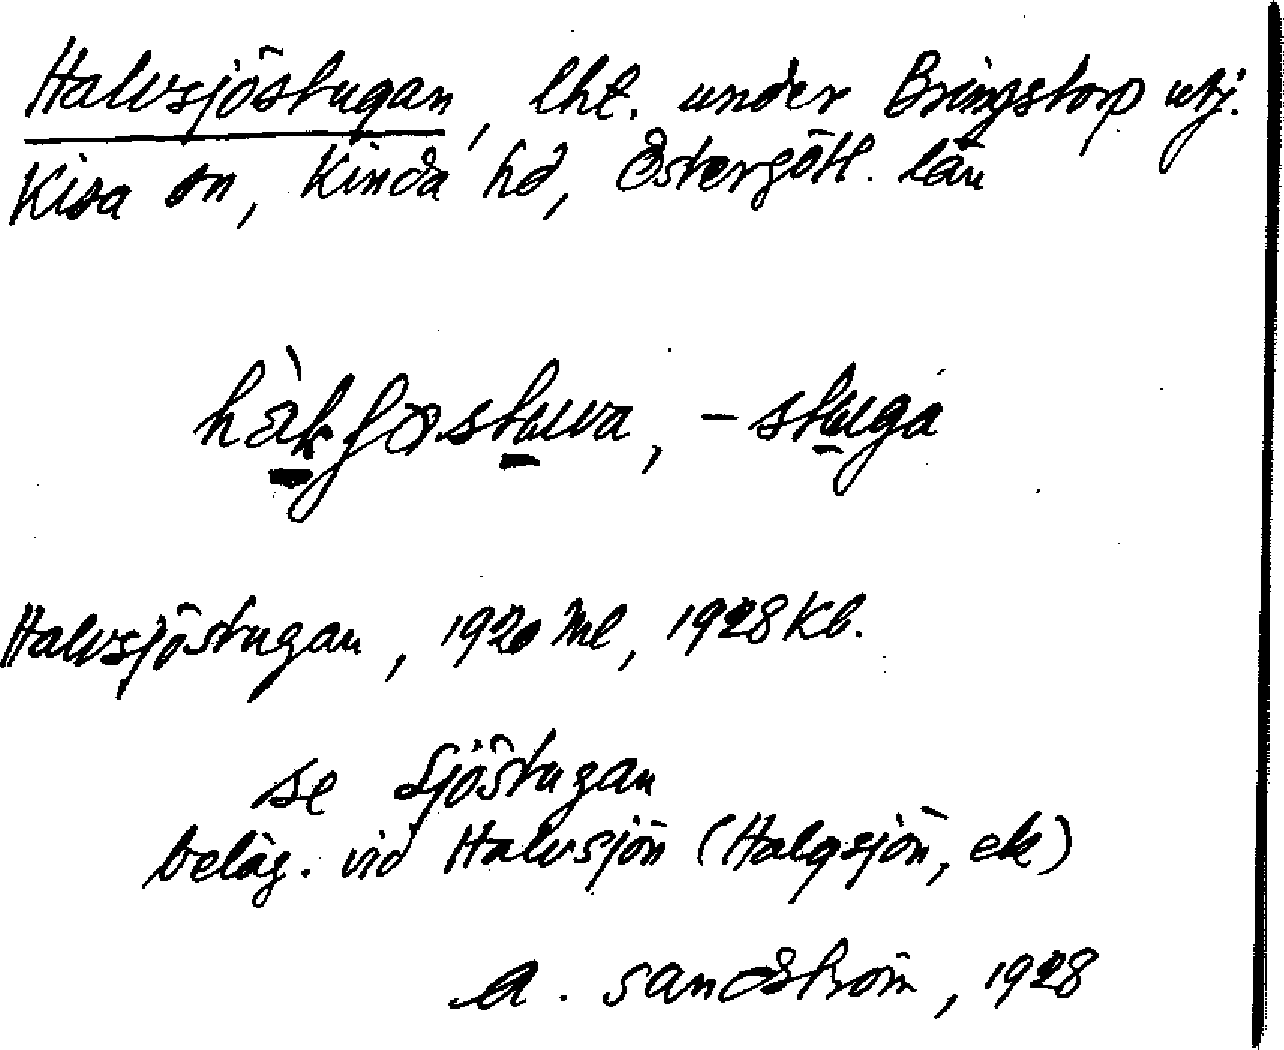 Halvsjöstugan, lht. under Bringstorp utj.
Kisa sn, Kinda hd, Östergötl. län
-stuga
Halvsjöstugan, 1920 Ml, 1928 Kb.
se Sjöstugan
beläg. vid Halvsjön (Halgsjön, ek)
A. Sandström, 1928